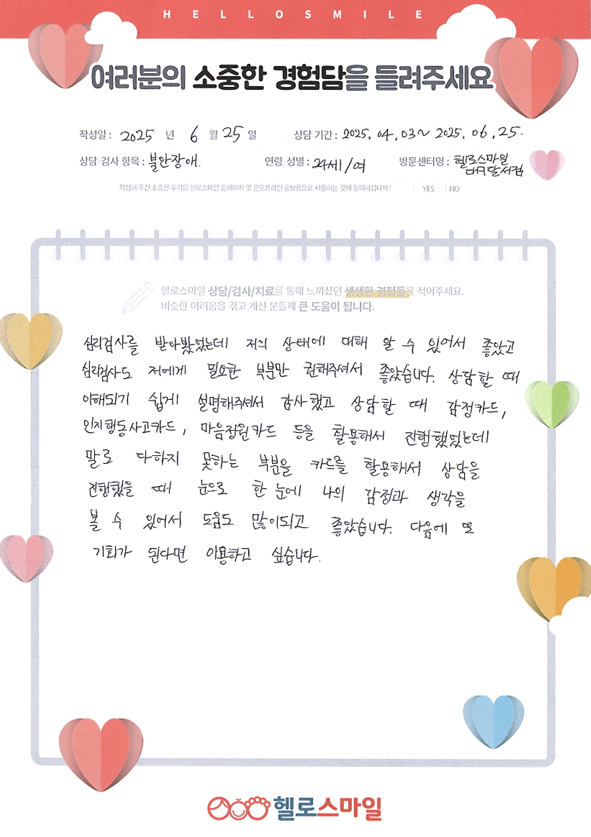 HELLOSMILE
여러분의 소중한 경험담을 들려주세요
작성일 : 2025 년 6 월 25 일 상담 기간 : 2025. 04. 03 ~ 2025. 06. 25.
상담 검사 항목 : 불안장애. 연령 성별 : 24세/여 방문센터명 : 헬로스마일 대구달서점
작성해 주신 소중한 후기를 헬로스마일 홈페이지 및 온오프라인 홍보용으로 사용하는 것에 동의하십니까? YES NO
헬로스마일 상담/검사/치료를 통해 느끼셨던 생생한 경험들을 적어주세요.
비슷한 어려움을 겪고 계신 분들께 큰 도움이 됩니다.
심리검사를 받아봤었는데 저의 상태에 대해 알 수 있어서 좋았고
심리검사도 저에게 필요한 부분만 권해주셔서 좋았습니다. 상담할 때
이해되기 쉽게 설명해주셔서 감사했고 상담할 때 감정카드,
인지행동사고카드, 마음정원카드 등을 활용해서 진행했었는데
말로 다하지 못하는 부분을 카드를 활용해서 상담을
진행했을 때 눈으로 한 눈에 나의 감정과 생각을
볼 수 있어서 도움도 많이되고 좋았습니다. 다음에 또
기회가 된다면 이용하고 싶습니다.
헬로스마일